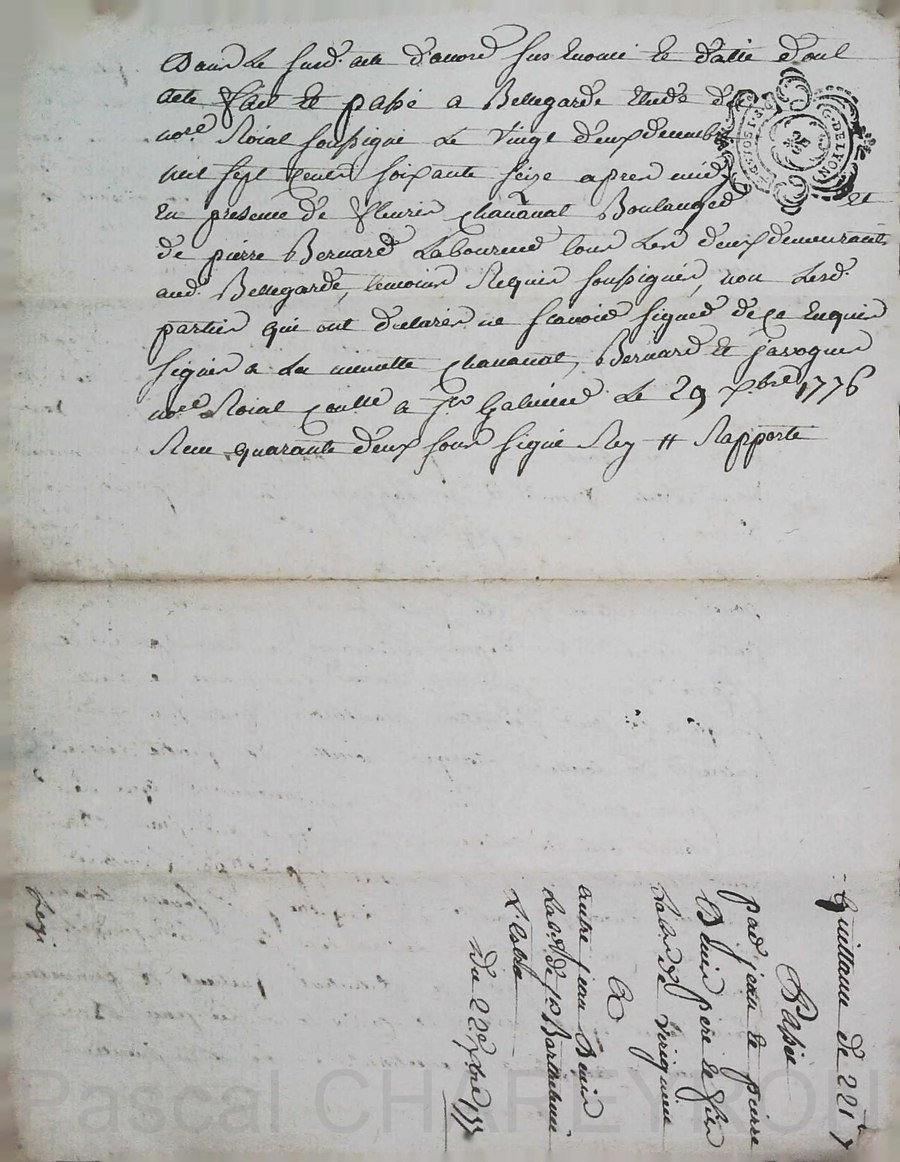 Dans Le susd. acte d'accord sus Enoncé et datté dont
acte fait et passé a Bellegarde Etude du
nore. Roial soussigné Le vingt deux decembre
mil sept cents soixante seize apres midy
En presence de fleurier chananat Boulanger et
de pierre Bernard Laboureur tous Les deux demeurants
aud. Bellegarde, temoins Requis soussignés, non Lesd.
parties qui ont declarés ne scavoir signer de ce Enquis
signés a La minutte chananat, Bernard et
nore. Roial contlé a St Galmier Le 29 xbre 1776
Reçu quarante deux sous signé Rey # Rapporté
G. DE LYON
Quittance de 221 
Passée
par jean et pierre
Denis pere et fils
de Virigneux
A
autre jean Denis
Lab. de St Barthelemi
Lestra
du 22e xbre 177
Pascal CHAPEYRON